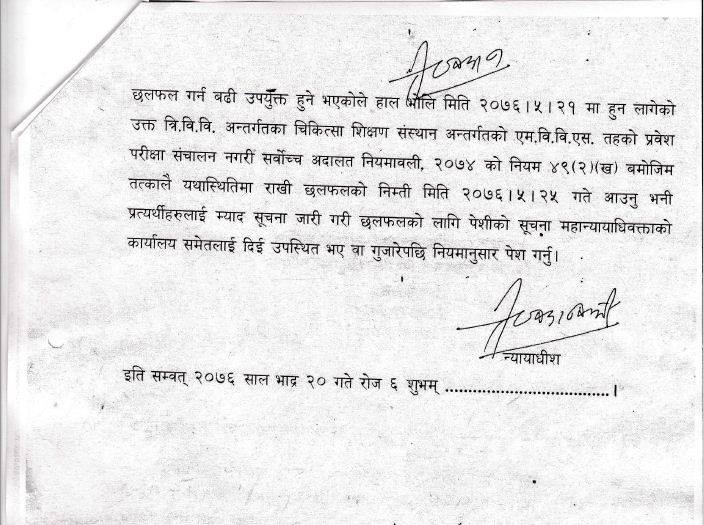 छलफल गर्न बढी उपर्युक्त हुने भएकोले हाल भोलि मिति २०७६।५।२१ मा हुन लागेको
उक्त त्रि.वि.वि. अन्तर्गतका चिकित्सा शिक्षण संस्थान अन्तर्गतको एम.वि.वि.एस. तहको प्रवेश
परीक्षा संचालन नगरी सर्वोच्च अदालत नियमावली, २०७४ को नियम ४९(२)(ख) बमोजिम
तत्कालै यथास्थितिमा राखी छलफलको निम्ती मिति २०७६।५।२५ गते आउनु भनी
प्रत्यर्थीहरुलाई म्याद सूचना जारी गरी छलफलको लागि पेशीको सूचना महान्यायाधिवक्ताको
कार्यालय समेतलाई दिई उपस्थित भए वा गुजारेपछि नियमानुसार पेश गर्नु।
न्यायाधीश
इति सम्वत् २०७६ साल भाद्र २० गते रोज ६ शुभम् ....................................।